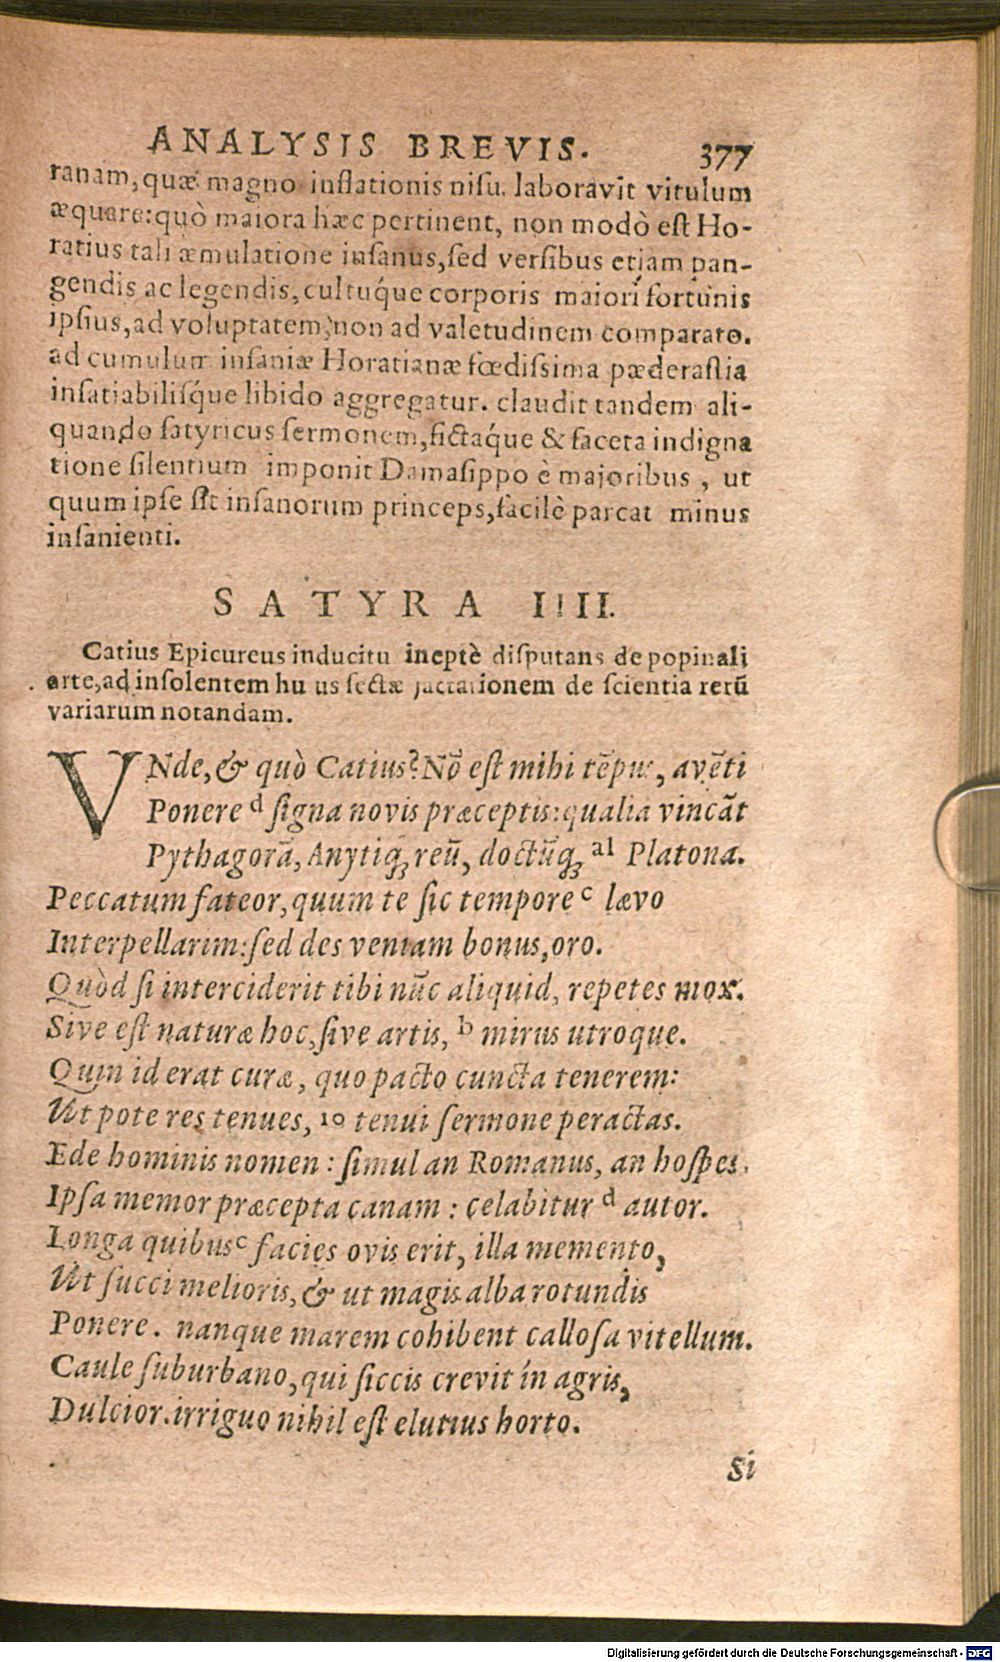 ANALYSIS BREVIS. 377
ranam, quæ magno inflationis nisu laboravit vitulum
æquare: quò maiora hæc pertinent, non modò est Ho-
ratius tali æmulatione insanus, sed versibus etiam pan-
gendis ac legendis, cultuq́ue corporis maiori fortunis
ipsius, ad voluptatem, non ad valetudinem comparato.
ad cumulum insaniæ Horatianæ fœdissima pæderastia
insatiabilisq́ue libido aggregatur. claudit tandem ali-
quando satyricus sermonem, fictaq́ue & faceta indigna
tione silentium imponit Damasippo è majoribus, ut
quum ipse sit insanorum princeps, facilè parcat minus
insanienti.
SATYRA IIII.
Catius Epicureus inducitu ineptè disputans de popinali
arte, ad insolentem hu us sectæ jactationem de scientia rerū
variarum notandam.
VNde, & quò Catius? Nō est mihi tēpus, avēti
Ponere d signa novis præceptis: qualia vincāt
Pythagorā, Anytiq́ꝫ reū, doctūq́ꝫ al Platona.
Peccatum fateor, quum te sic tempore c lævo
Interpellarim: sed des veniam bonus, oro.
Quòd si interciderit tibi nūc aliquid, repetes mox.
Sive est naturæ hoc, sive artis, b mirus utroque.
Quin id erat curæ, quo pacto cuncta tenerem:
Ut pote res tenues, 10 tenui sermone peractas.
Ede hominis nomen: simul an Romanus, an hospes.
Ipsa memor præcepta canam: celabitur d autor.
Longa quibus c facies ovis erit, illa memento,
Ut succi melioris, & ut magis alba rotundis
Ponere. nanque marem cohibent callosa vitellum.
Caule suburbano, qui siccis crevit in agris,
Dulcior. irriguo nihil est elutius horto.
Si
Digitalisierung gefördert durch die Deutsche Forschungsgemeinschaft - DFG